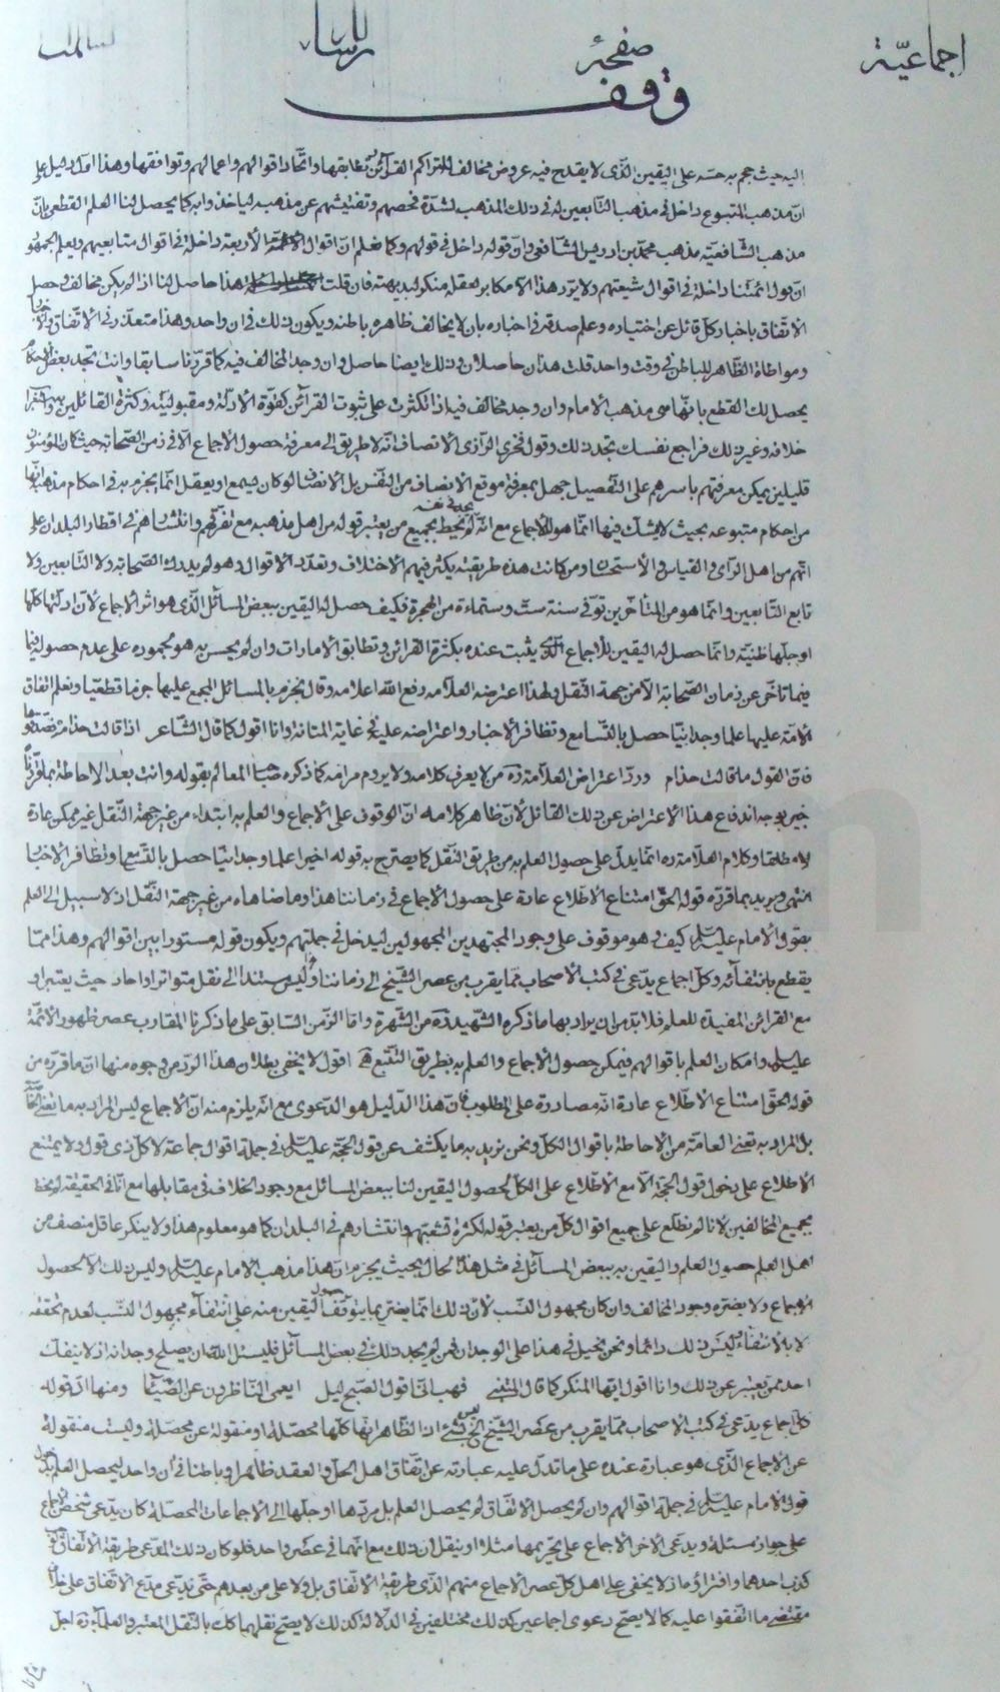 اجماعيّة
صفحة
وقف
اليه حيث حجم به حسّه على اليقين الّذى لا يقدح فيه عروض مخالف لتراكم القرآئن بتطابقها واتّحاد اقوالهم واعمالهم وتوافقها وهذا اوّل دليل على
انّ مذهب المتبوع داخل فى مذهب التّابعين له فى ذلك المذهب لشدّة فحصهم وتفتيشهم عن مذهبه لياخذوا به كما يحصل لنا العلم القطعى بانّ
مذهب الشّافعيّة مذهب محمّد بن ادريس الشّافعى وانّ قوله داخل فى قولهم وكما نعلم انّ اقوال الائمّة الأربعة داخلة فى اقوال متابعيهم ويعلم الجمهور
انّ قول ائمّتنا داخلة فى اقوال شيعتهم ولا يردّ هذا الّا مكابر لعقله منكر لبديهته فان قلت هذا حاصل لنا اذا لم يكن مخالف وحصل
الاتّفاق باخبار كلّ قائل عن اختياره وعلم صدقه فى اخباره بان لا يخالف ظاهره باطنه ويكون ذلك فى ان واحد وهذا متعذّر فى الاتّفاق
ومواطاة الظّاهر للباطن فى وقت واحد قلت هذان حاصلان وذلك ايضا حاصل وان وجد المخالف فيه كما قرّرنا سابقا وانت تجد بعض الاحكام
يحصل لك القطع بانّها هى مذهب الامام وان وجد مخالف فيه اذا تكثّرت على ثبوت القرآئن كقوّة الادلّة ومقبوليّته وكثرة القائلين
خلافه وغير ذلك فراجع نفسك تجد ذلك وقول فخرى الرّازى الانصاف انّه لا طريق الى معرفة حصول الاجماع الّا فى زمن الصّحابة حيث كان المؤمنون
قليلين يمكن معرفتهم باسرهم على التّفصيل جهل بمعرفة موقع الانصاف من النّفس بل الانصاف لو كان يسمع او يعقل انّما يجزم به فى احكام مذهبه انّها
من احكام متبوعه بحيث لا يشكّ فيها انّما هو للاجماع مع انّه لم يحط بجميع من يعتبر قوله من اهل مذهبه مع تفرّقهم وانتشارهم فى اقطار البلدان على
انّهم من اهل الرّاى والقياس والاستحسان ومن كانت هذه طريقته يكثر فيهم الاختلاف وتعدّد الاقوال وهو لم يدرك الصّحابة ولا التّابعين ولا
تابع التّابعين وانّما هو من المتأخّرين توفّى سنة ستّ وستّمائة من الهجرة فكيف حصل له اليقين ببعض المسآئل الّذى هو اثر الاجماع لانّ ادلّتها كلّها
او جلّها ظنّيّة وانّما حصل له اليقين للاجماع الّذى يثبت عنده بكثرة القرائن وتطابق الامارات وان لم يحسن به هو لجموده على عدم حصوله فيما
فيما تاخّر عن زمان الصّحابة الّا من جهة النّقل ولهذا اعترضه العلّامه رفع اللّه اعلامه وقال نجزم بالمسائل المجمع عليها جزما قطعيّا ونعلم اتّفاق
الامّة عليها علما وجدانيّا حصل بالتّسامع وتظافر الاخبار واعتراضه عليه فى غاية المتانة وانا اقول كما قال الشّاعر اذا قالت حذام فصدّقوها
فانّ القول ما قالت حذام وردّ اعتراض العلّامة ره من لا يعرف كلامه ولا يروم مرامه كما ذكره صاحب المعالم بقوله وانت بعد الاحاطة بما قرّرناه
خبير بوجه اندفاع هذا الاعتراض عن ذلك القائل لانّ ظاهر كلامه انّ الوقوف على الاجماع والعلم به ابتداء من غير جهة النّقل غير ممكن عادة
لا مطلقا وكلام العلّامة ره انّما يدلّ على حصول العلم به من طريق النّقل كما يصرّح به قوله اخيرا علما وجدانيّا حصل بالتّسامع وتظافر الاخبار
انتهى ويريد بما قرّره قوله الحقّ امتناع الاطّلاع عادة على حصول الاجماع فى زماننا هذا وما ضاهاه من غير جهة النّقل اذ لا سبيل الى العلم
بقول الامام عليه السّلم كيف وهو موقوف على وجود المجتهدين المجهولين ليدخل فى جملتهم ويكون قوله مستورا بين اقوالهم وهذا ممّا
يقطع بانتفائه وكلّ اجماع يدّعى فى كتب الاصحاب ممّا يقرب من عصر الشّيخ الى زماننا وليس مستندا الى نقل متواترا واحاد حيث يعتبر او
مع القرائن المفيدة للعلم فلا بدّ من ان يراد بها ما ذكره الشّهيد ره من الشّهرة وامّا الزّمن السّابق على ما ذكرنا المقارب عصر ظهور الائمّة
عليهم السلم وامكان العلم باقوالهم فيمكن حصول الاجماع والعلم به بطريق التّتبّع اقول لا يخفى بطلان هذا الردّ من وجوه منها انّ ما قرّره من
قوله الحقّ امتناع الاطّلاع عادة انّه مصادرة على المطلوب فانّ هذا الدّليل هو الدّعوى مع انّه يلزم منه انّ الاجماع ليس المراد به ما
بل المراد به تعنى العامّة من الاحاطة باقوال الكلّ ونحن نريد به ما يكشف عن قول الحجّة عليه السّلم فى جملة اقوال جماعة لا كلّ ذى قول ولا يمتنع
الاطّلاع على دخول قول الحجّة الّا مع الاطّلاع على الكلّ لحصول اليقين لنا ببعض المسائل مع وجود الخلاف فى مقابلها مع انّا فى الحقيقة لم نحط
بجميع المخالفين لانا لم نطّلع على جميع اقوال كلّ من يعتبر قوله لكثرة تشعّبهم وانتشارهم فى البلدان كما هو معلوم هذا ولا ينكر عاقل منصف من
اهل العلم حصول العلم واليقين به ببعض المسآئل فى مثل هذا الحال بحيث يجزم انّ هذا مذهب الامام عليه السّلم وليس ذلك الّا لحصول
الاجماع ولا يضرّه وجود المخالف وان كان مجهول النّسب لانّ ذلك انّما يضرّ بما يتوقّف حصول اليقين منه على انتفاء مجهول النّسب لعدم تحقّقه
الّا به لانتفاء وليس ذلك دائما ونحن نحيل فى هذا على الوجدان فمن لم يجد ذلك فى بعض المسآئل فليسئل اللّه ان يصلح وجدانه اذ لا ينفكّ
احد ممّن يعتبر عن ذلك وانا اقول ايّها المنكر كما قال المتنبّى فهب انّى اقول الصّبح ليل ايعمى النّاظرون عن الضّيآء ومنها انّ قوله
كلّ اجماع يدّعى فى كتب الاصحاب ممّا يقرب من عصر الشّيخ الخ ليس بشئ اذ الظّاهر انّها كلّها محصّلة او منقولة عن محصّلة وليست منقولة
عن الاجماع الّذى هو عبارة عنده على ما تدلّ عليه عبارته عن اتّفاق اهل الحلّ والعقد ظاهرا وباطنا فى ان واحد ليحصل العلم بدخول
قول الامام عليه السّلم فى جملة اقوالهم وان لم يحصل الاتّفاق لم يحصل العلم بل مردّها او جلّها الى الاجماعات المحصّلة كان يدّعى شخص الاجماع
على جواز مسئلة ويدّعى الاخر الاجماع على تحريمها مثلا او ينقلان ذلك مع انّهما فى عصر واحد فلو كان ذلك المدّعى طريقة الاتّفاق
كذب احدهما وافتراؤه ما ذا لا يخفى على اهل كلّ عصر الاجماع منهم الّذى طريقة الاتّفاق بل ولا على من بعدهم حتّى يدّعى مدّع الاتّفاق على خلاف
مقتضى ما اتّفقوا عليه كما لا يصحّ دعوى اجماعين كذلك مختلفين فى الدّلالة كذلك لا يصحّ نقلهما كك بالنّقل المعتبر والعلمآء ره اجل